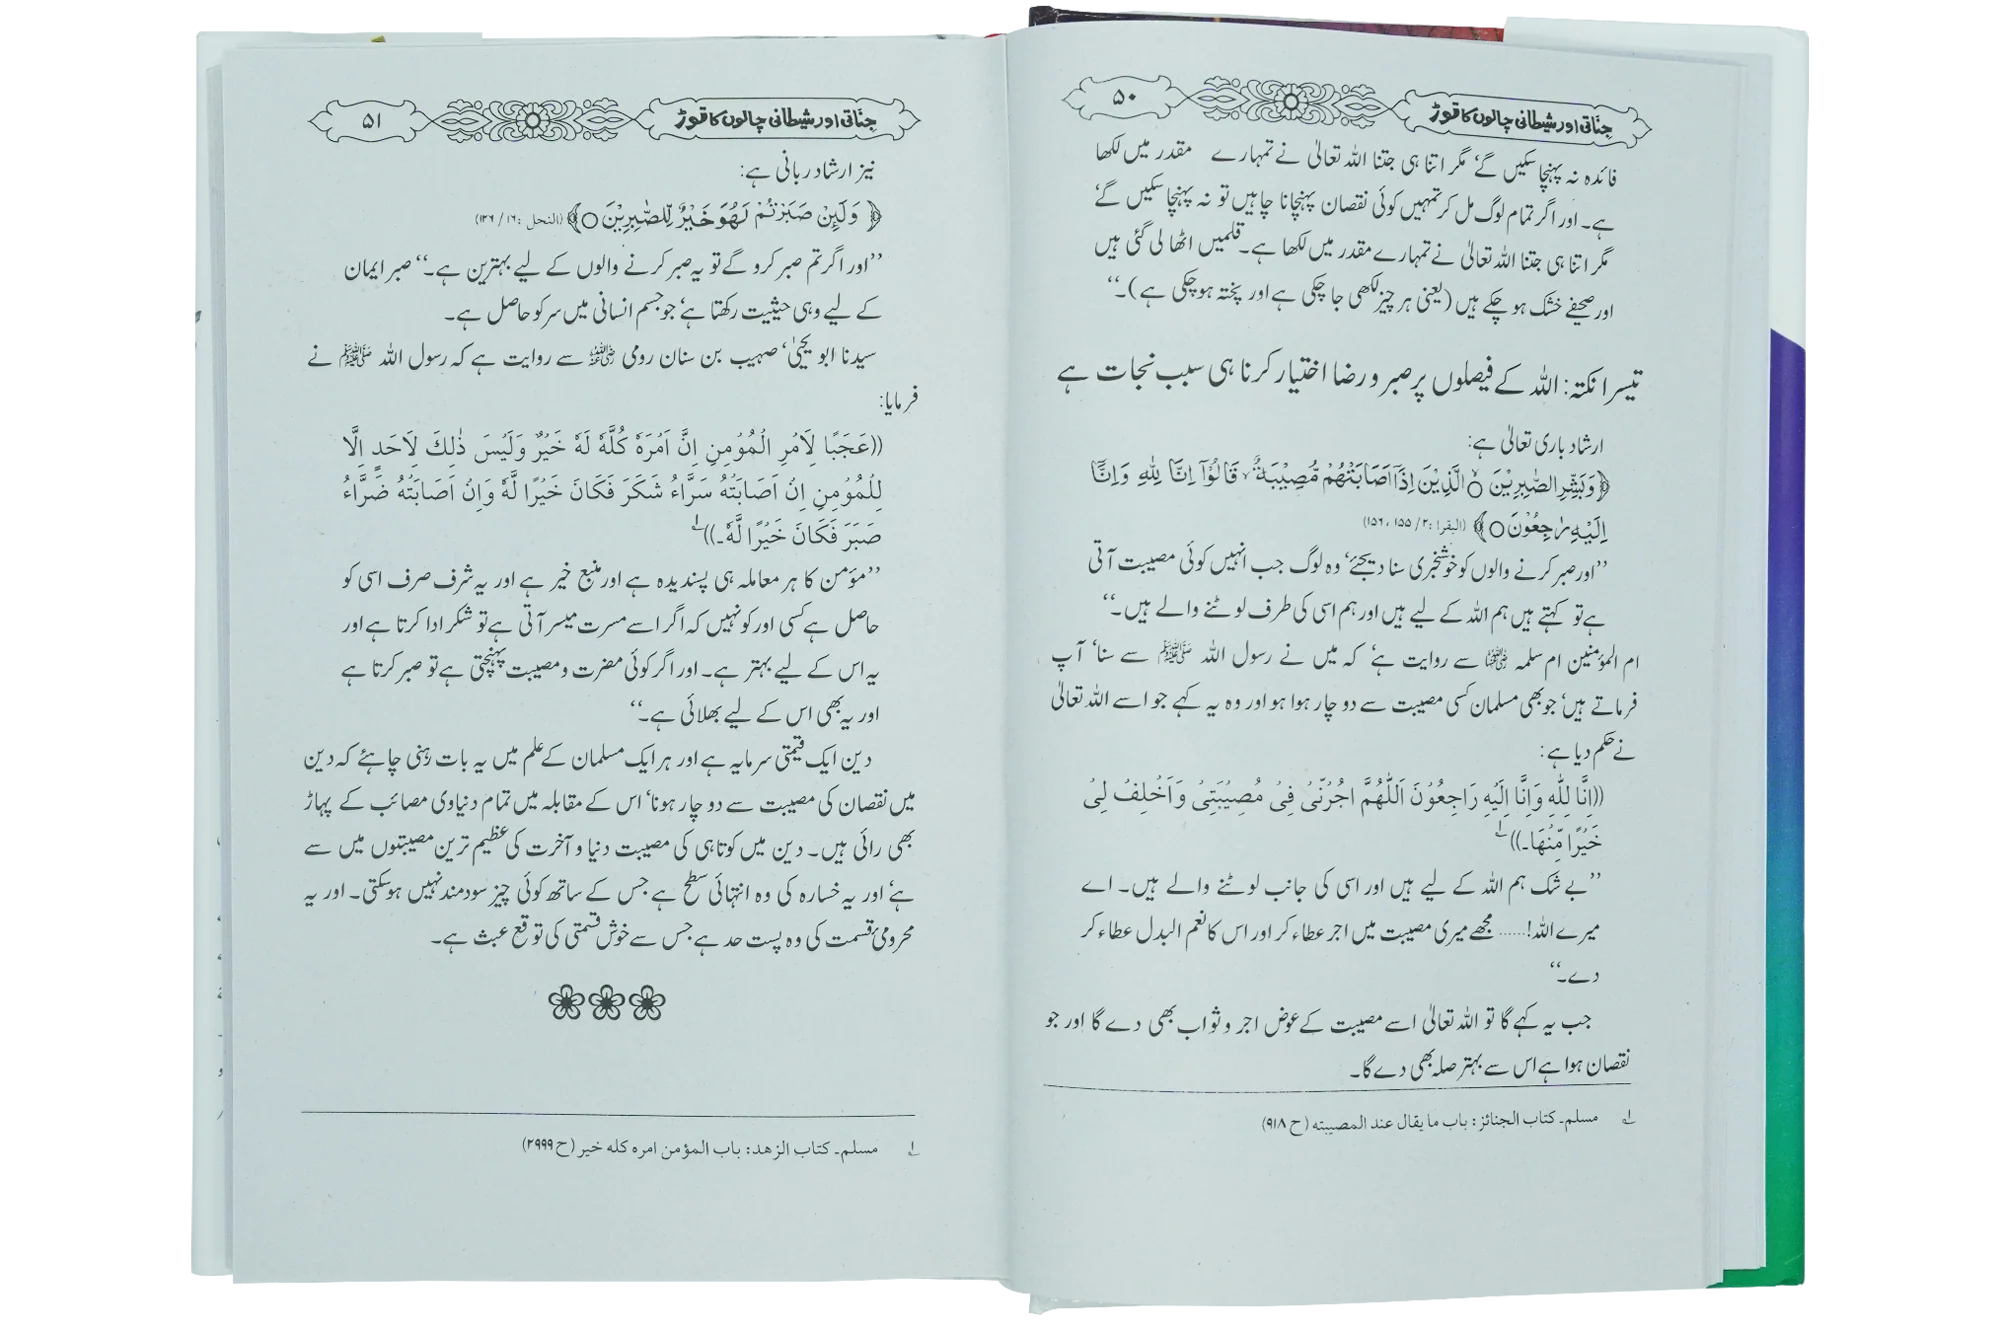 جناتی اور شیطانی چالوں کا توڑ ۵۰
فائدہ نہ پہنچا سکیں گے، مگر اتنا ہی جتنا اللہ تعالیٰ نے تمہارے مقدر میں لکھا
ہے۔ اور اگر تمام لوگ مل کر تمہیں کوئی نقصان پہنچانا چاہیں تو نہ پہنچا سکیں گے،
مگر اتنا ہی جتنا اللہ تعالیٰ نے تمہارے مقدر میں لکھا ہے۔ قلمیں اٹھا لی گئی ہیں
اور صحیفے خشک ہو چکے ہیں (یعنی ہر چیز لکھی جا چکی ہے اور پختہ ہو چکی ہے)۔‘‘
تیسرا نکتہ: اللہ کے فیصلوں پر صبر و رضا اختیار کرنا ہی سبب نجات ہے
ارشاد باری تعالیٰ ہے:
﴿وَبَشِّرِ الصّٰبِرِیْنَ ○ الَّذِیْنَ اِذَآ اَصَابَتْهُمْ مُّصِیْبَةٌ ۙ قَالُوْٓا اِنَّا لِلّٰهِ وَاِنَّآ
اِلَیْهِ رٰجِعُوْنَ ○﴾ (البقرا :۲/ ۱۵۵، ۱۵۶)
’’اور صبر کرنے والوں کو خوشخبری سنا دیجئے، وہ لوگ جب انہیں کوئی مصیبت آتی
ہے تو کہتے ہیں ہم اللہ کے لیے ہیں اور ہم اسی کی طرف لوٹنے والے ہیں۔‘‘
ام المؤمنین ام سلمہ رضی اللہ عنہا سے روایت ہے، کہ میں نے رسول اللہ ﷺ سے سنا، آپ
فرماتے ہیں، جو بھی مسلمان کسی مصیبت سے دو چار ہوا ہو اور وہ یہ کہے جو اسے اللہ تعالیٰ
نے حکم دیا ہے:
((اِنَّا لِلّٰهِ وَاِنَّا اِلَیْهِ رَاجِعُوْنَ اَللّٰهُمَّ اجُرْنِّیْ فِیْ مُصِیْبَتِیْ وَاَخْلِفْ لِیْ
خَیْرًا مِّنْهَا۔)) ۱؎
’’بے شک ہم اللہ کے لیے ہیں اور اسی کی جانب لوٹنے والے ہیں۔ اے
میرے اللہ!...... مجھے میری مصیبت میں اجر عطاء کر اور اس کا نعم البدل عطاء کر
دے۔‘‘
جب یہ کہے گا تو اللہ تعالیٰ اسے مصیبت کے عوض اجر و ثواب بھی دے گا اور جو
نقصان ہوا ہے اس سے بہتر صلہ بھی دے گا۔
۱؎ مسلم۔ کتاب الجنائز: باب ما یقال عند المصیبته (ح ۹۱۸)
جناتی اور شیطانی چالوں کا توڑ ۵۱
نیز ارشاد ربانی ہے:
﴿وَلَئِنْ صَبَرْتُمْ لَهُوَ خَیْرٌ لِّلصّٰبِرِیْنَ ○﴾ (النحل :۱۶/ ۱۲۶)
’’اور اگر تم صبر کرو گے تو یہ صبر کرنے والوں کے لیے بہترین ہے۔‘‘ صبر ایمان
کے لیے وہی حیثیت رکھتا ہے، جو جسم انسانی میں سر کو حاصل ہے۔
سیدنا ابو یحییٰ، صہیب بن سنان رومی رضی اللہ عنہ سے روایت ہے کہ رسول اللہ ﷺ نے
فرمایا:
((عَجَبًا لِاَمْرِ الْمُؤْمِنِ اِنَّ اَمْرَهٗ کُلَّهٗ لَهٗ خَیْرٌ وَلَیْسَ ذٰلِكَ لِاَحَدٍ اِلَّا
لِلْمُؤْمِنِ اِنْ اَصَابَتْهُ سَرَّاءُ شَکَرَ فَکَانَ خَیْرًا لَّهٗ وَاِنْ اَصَابَتْهُ ضَرَّاءُ
صَبَرَ فَکَانَ خَیْرًا لَّهٗ۔)) ۱؎
’’مؤمن کا ہر معاملہ ہی پسندیدہ ہے اور منبع خیر ہے اور یہ شرف صرف اسی کو
حاصل ہے کسی اور کو نہیں کہ اگر اسے مسرت میسر آتی ہے تو شکر ادا کرتا ہے اور
یہ اس کے لیے بہتر ہے۔ اور اگر کوئی مضرت و مصیبت پہنچتی ہے تو صبر کرتا ہے
اور یہ بھی اس کے لیے بھلائی ہے۔‘‘
دین ایک قیمتی سرمایہ ہے اور ہر ایک مسلمان کے علم میں یہ بات رہنی چاہئے کہ دین
میں نقصان کی مصیبت سے دو چار ہونا، اس کے مقابلہ میں تمام دنیاوی مصائب کے پہاڑ
بھی رائی ہیں۔ دین میں کوتاہی کی مصیبت دنیا و آخرت کی عظیم ترین مصیبتوں میں سے
ہے، اور یہ خسارہ کی وہ انتہائی سطح ہے جس کے ساتھ کوئی چیز سودمند نہیں ہو سکتی۔ اور یہ
محرومیٔ قسمت کی وہ پست حد ہے جس سے خوش قسمتی کی توقع عبث ہے۔
۱؎ مسلم۔ کتاب الزهد: باب المؤمن امره کله خیر (ح ۲۹۹۹)